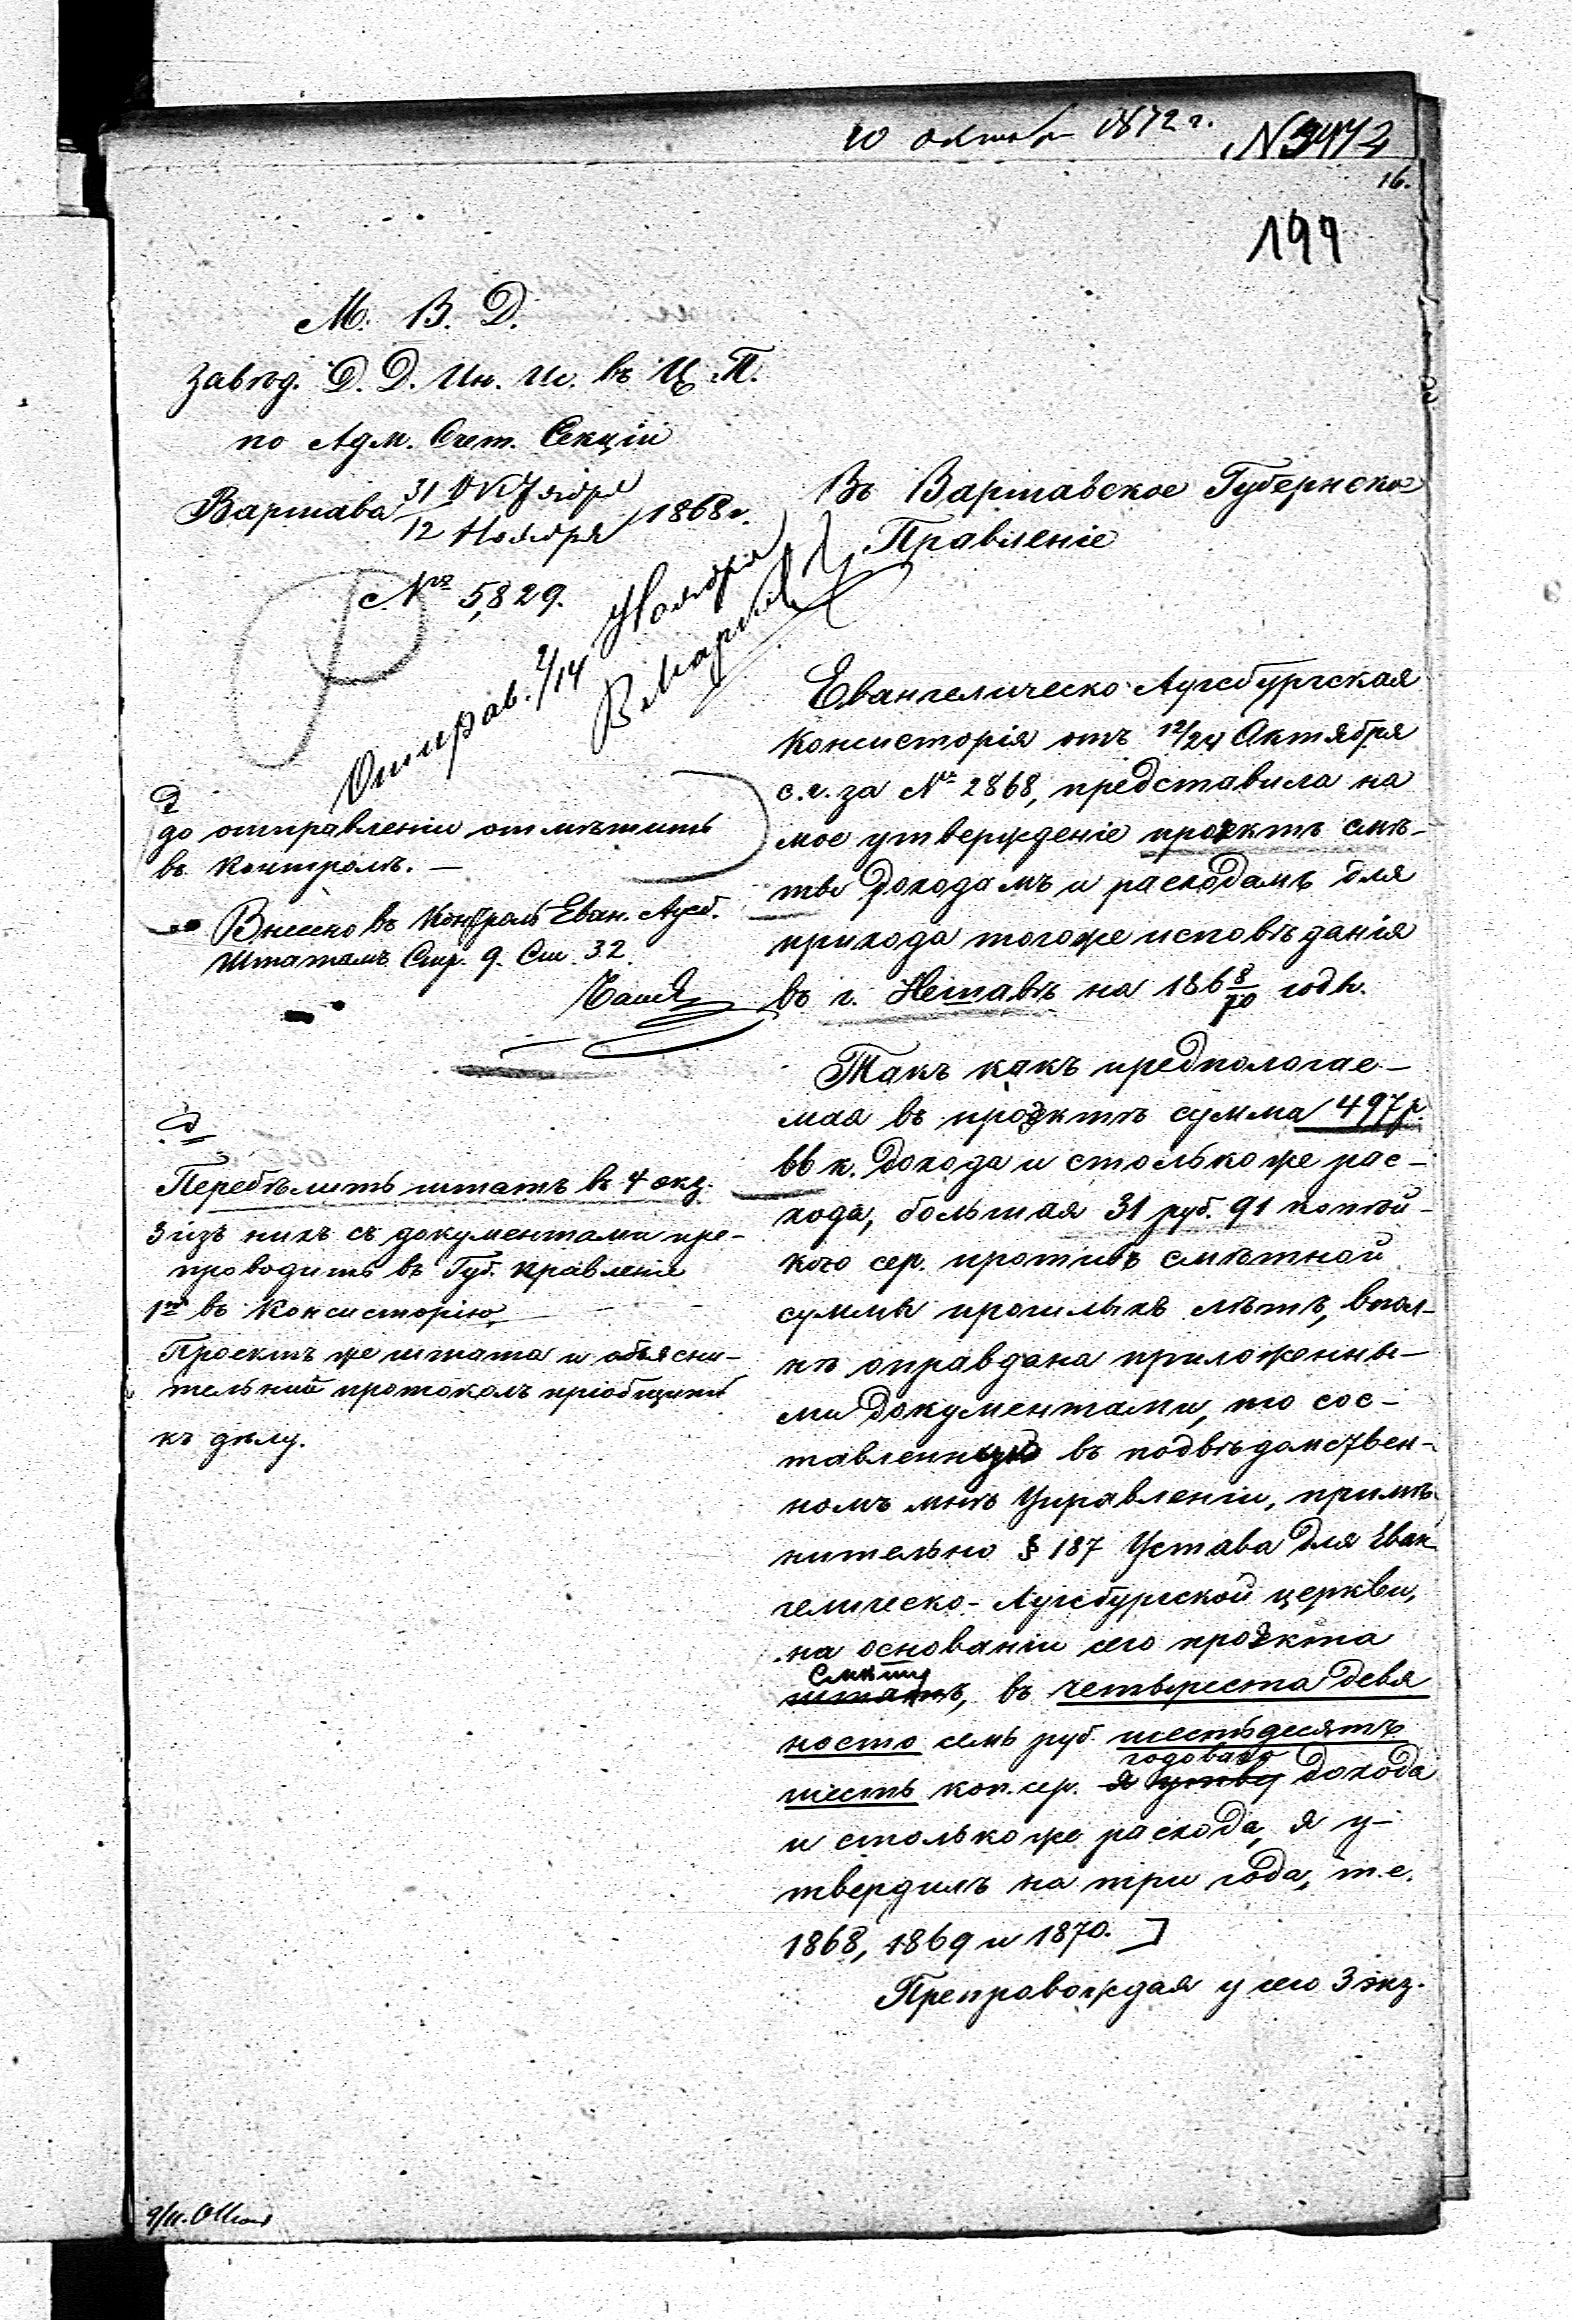 10 октябр 1872 г. № 3472
16.
199
М. В. Д.
Завѣд. Д. Д. Ин. Ис. въ Ц. П.
по Адм. Счет. Секціи
Варшава 31 Октября / 12 Ноября 1868 г.
№ 5,829.
Отправ. 2/14 Ноября
до отправленіи отмѣтить
въ контролѣ. —
Внесено въ Контроль Еван. Аугсб.
Штатамъ Стр. 9. Ст. 32.
Перебѣлить штатъ въ 4 экз.
3 изъ нихъ съ документами пре-
проводить въ Губ. Правленіе
1 въ Консисторію,
Проектъ же штата и объясни-
тельный протоколъ пріобщить
къ дѣлу.
Въ Варшавское Губернское
Правленіе
Евангелическо-Аугсбургская
Консисторія отъ 12/24 Октября
с. г. за № 2868, представила на
мое утвержденіе проэктъ смѣ-
ты доходамъ и расходамъ для
прихода тогоже исповѣданія
въ г. Иставѣ на 1868/70 годы.
Такъ какъ предпологае-
мая въ проэктѣ сумма 497 р.
66 к. дохода и столькоже рас-
хода, большая 31 руб. 91 копѣй-
кою сер. противъ смѣтной
суммы прошлыхъ лѣтъ, впол-
нѣ оправдана приложенны-
ми документами, то сос-
тавленную въ подвѣдомствен-
номъ мнѣ Управленіи, примѣ-
нительно § 187 Устава для Еван
гелическо-Аугсбургской церкви,
на основаніи сего проэкта
смѣту
штатъ, въ четыреста девя
носто семь руб. шестьдесятъ
годоваго
шесть коп. сер. я утвер дохода
и столькоже расхода, я у-
твердилъ на три года, т. е.
1868, 1869 и 1870. ]
Препровождая у сего 3 экз.